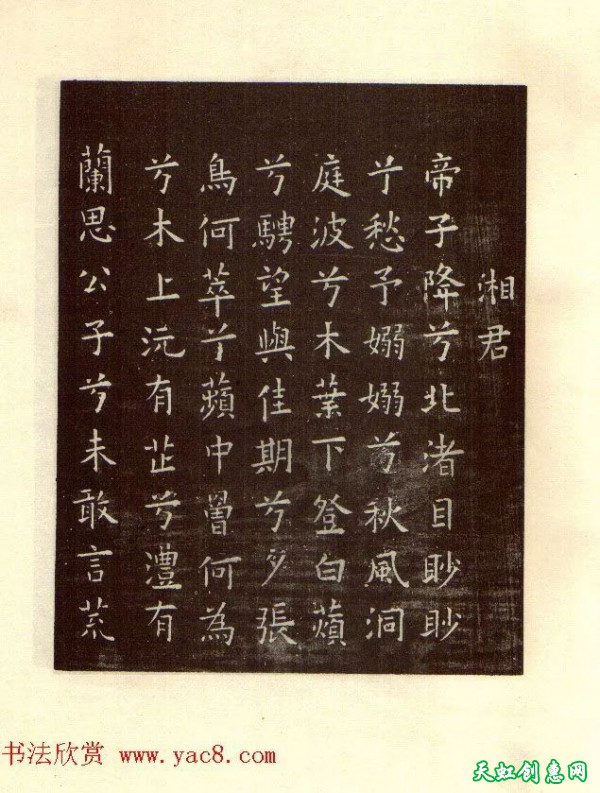 湘君
帝子降兮北渚目眇眇
兮愁予嫋嫋兮秋風洞
庭波兮木葉下登白薠
兮騁望與佳期兮夕張
鳥何萃兮蘋中罾何為
兮木上沅有芷兮澧有
蘭思公子兮未敢言荒
书法欣赏 www.yac8.com
天虹创意网